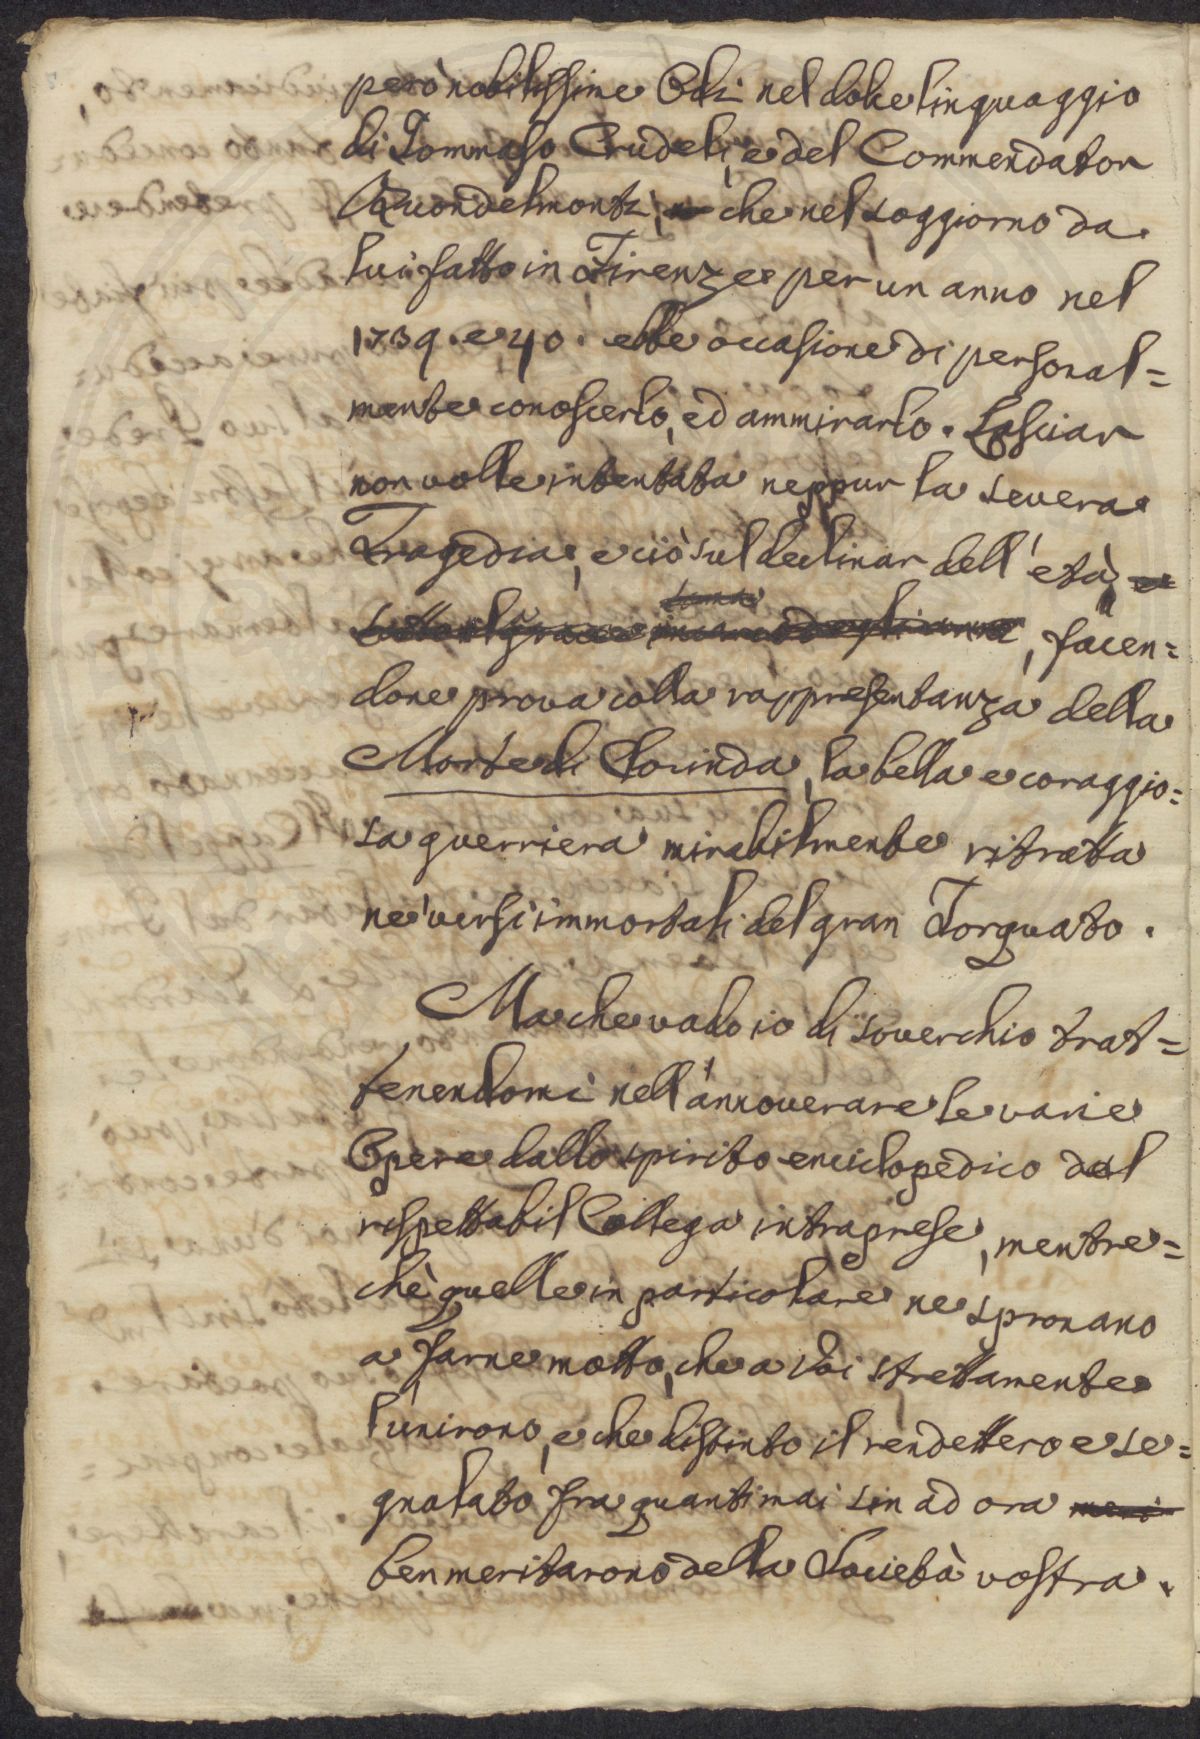 però nobilissime Odi nel dolce linguaggio
di Tommaso Crudeli, e del Commendator
Buondelmonti, che nel soggiorno da
lui fatto in Firenze per un anno nel
1739. e 40. ebbe occasione di personal=
mente conoscerlo, ed ammirarlo. Lasciar
non volle intentata neppur la severa
Tragedia, e ciò sul declinar dell'età,
, facen=
done prova colla rappresentanza della
Morte di Clorinda, la bella e coraggio=
sa guerriera mirabilmente ritratta
ne' versi immortali del gran Torquato.
Ma che vado io di soverchio trat=
tenendomi nell'annoverare le varie
Opere dallo spirito enciclopedico del
rispettabil Collega intraprese, mentre=
chè quelle in particolare ne spronano
a farne motto, che a Voi strettamente
l'unirono, e che distinto il rendettero e se=
gnalato fra quanti mai sin ad ora
ben meritarono della Società vostra.